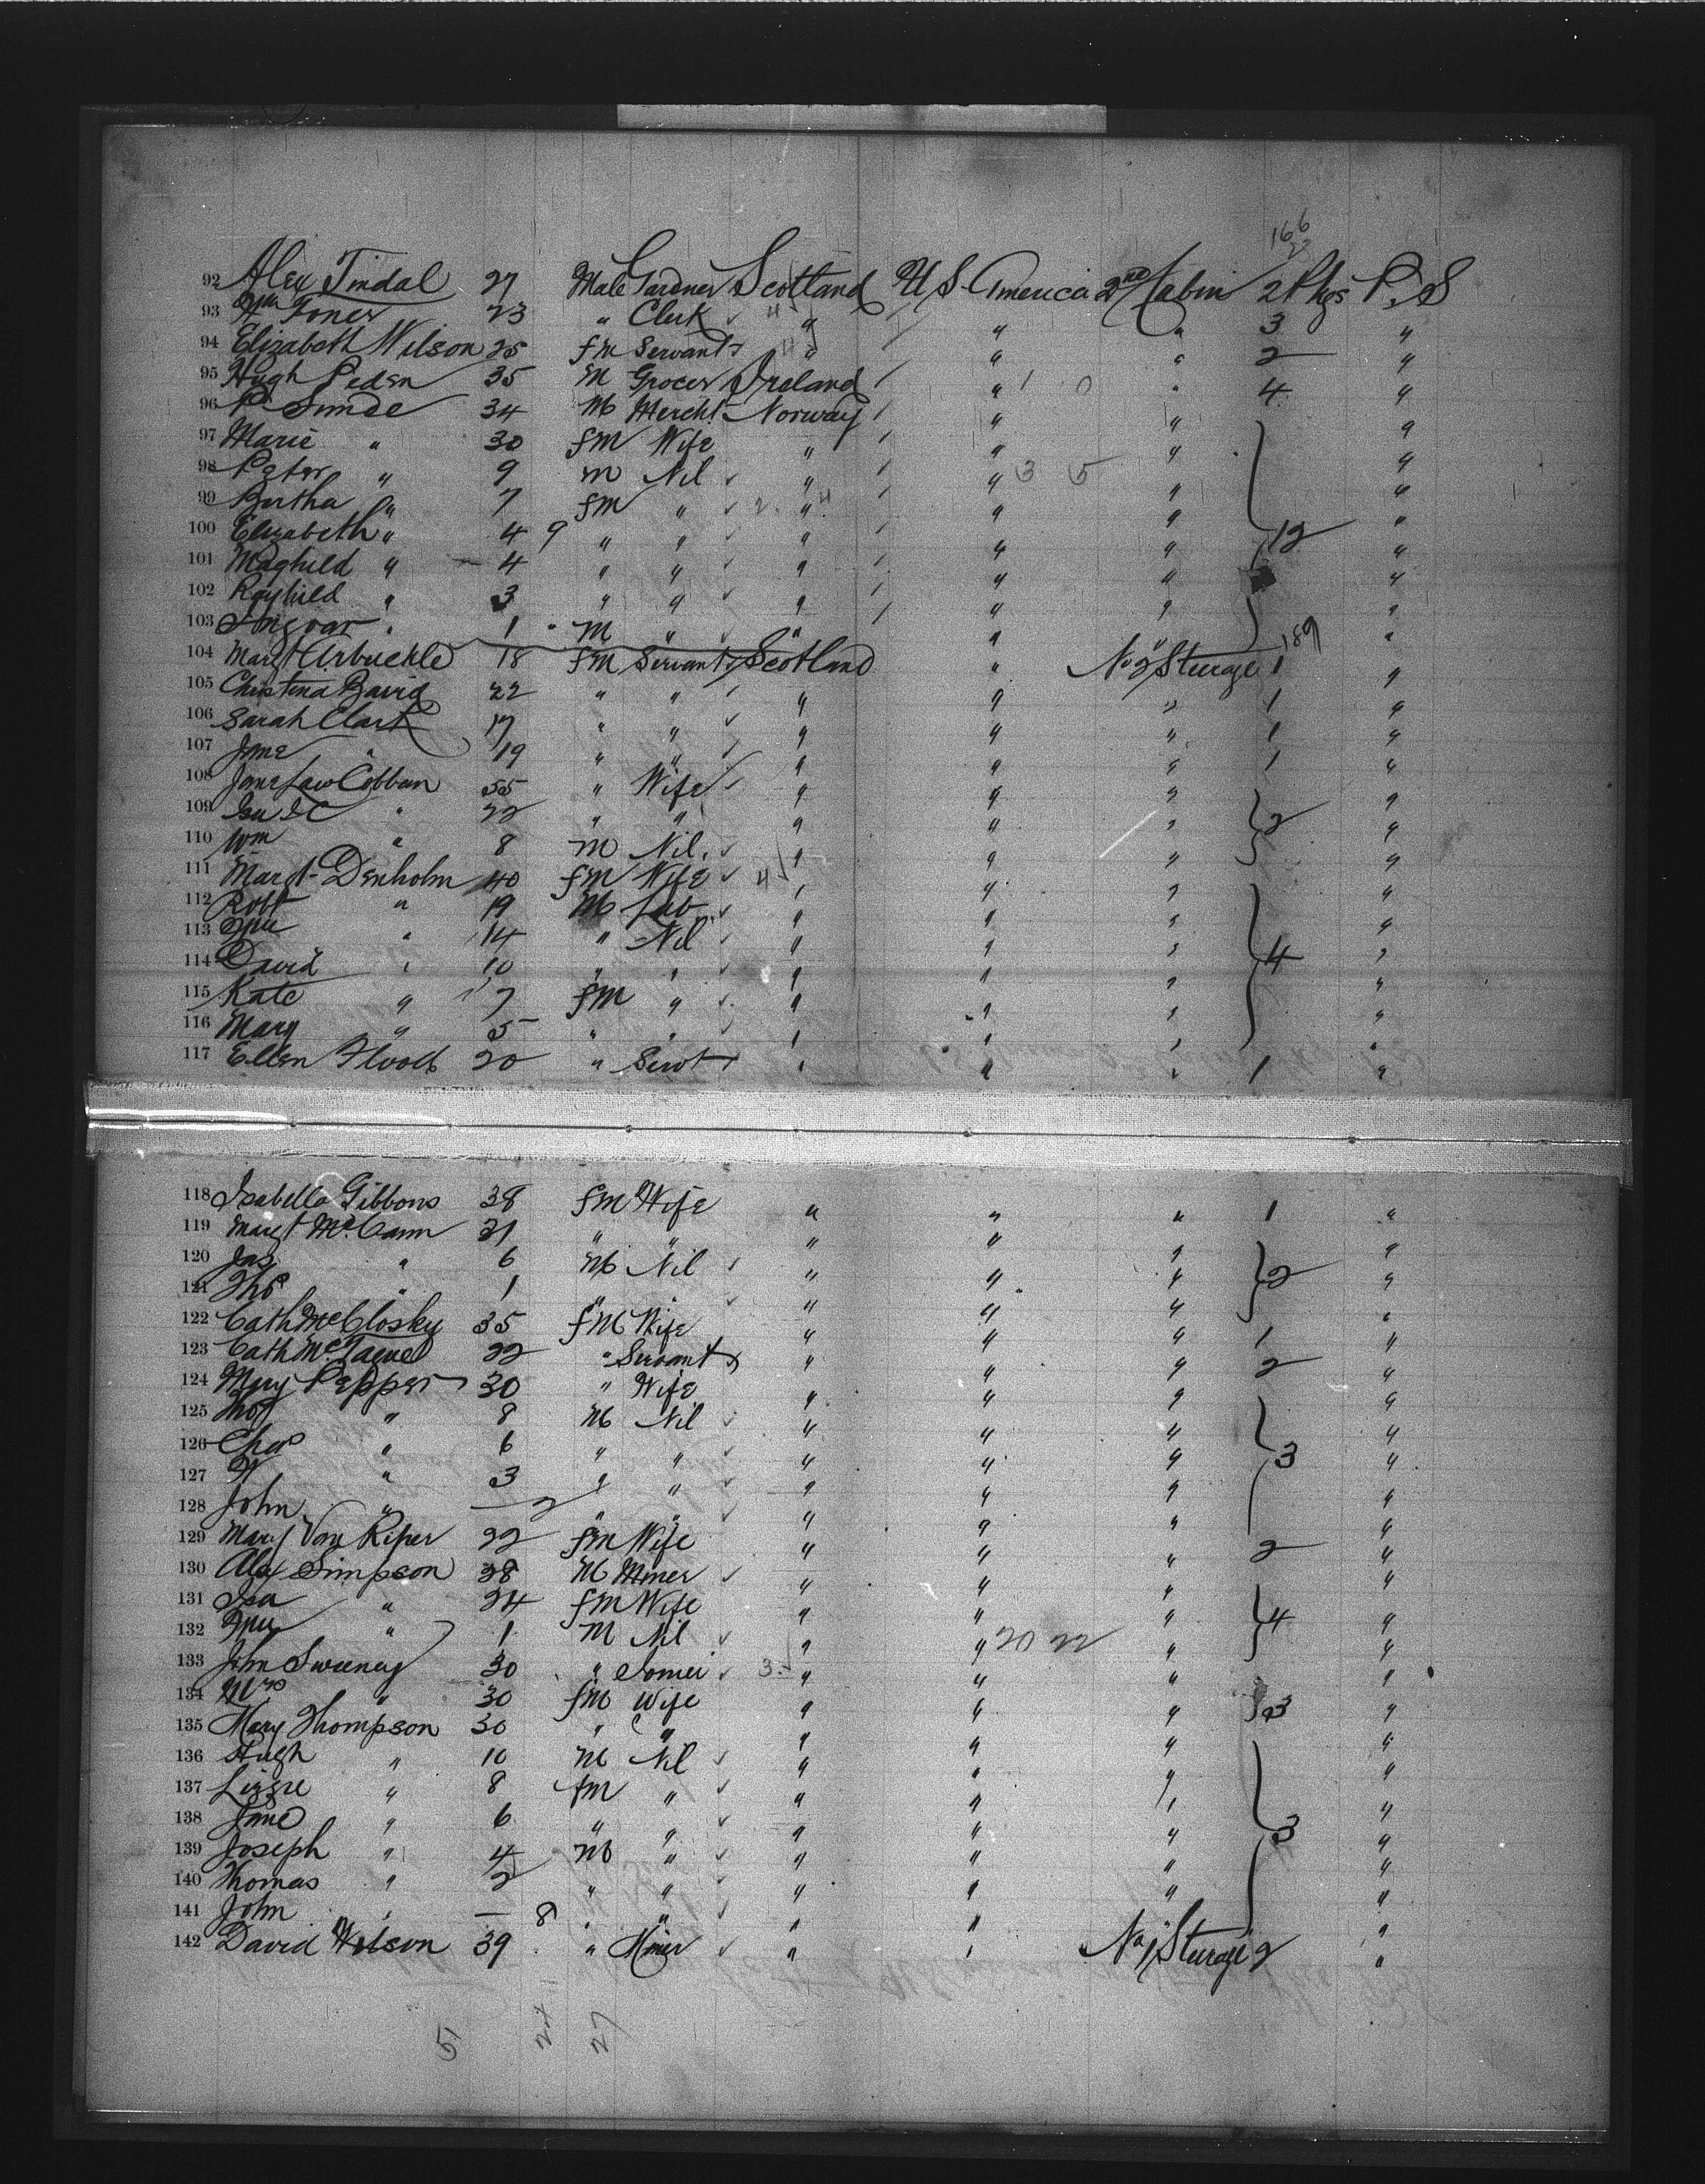 166
22
92 Alex Tindal 27 Male Gardner Scotland U S America 2nd Cabin 2 Pkgs P. S
93 Wm Jones 23 " Clerk " " " 3 "
94 Elizabeth Wilson 25 fm Servant " " " 2 "
95 Hugh Peden 35 M Grocer Ireland " " 4 "
96 P Sunde 34 M Mercht Norway " " "
97 Marie " 30 fm Wife " " " "
98 Peter " 9 m Nil " " " "
99 Bertha " 7 fm " " " " "
100 Elizabeth " 4 " " " " " 12 "
101 Maghild " 4 " " " " " "
102 Rayhild " 3 " " " " " "
103 Ingvar " 1 M " " " " "
189
104 Margt Arbuckle 18 fm Servant Scotland " No 2 Sturage 1 "
105 Christina David 22 " " " " " 1 "
106 Sarah Clark 17 " " " " " 1 "
107 Jane " 19 " " " " " 1 "
108 Jane Law Cobban 55 " Wife " " " "
109 Isa & C " 22 " " " " " 2 "
110 Wm " 8 m Nil " " " "
111 Margt Denholm 40 fm Wife " " " "
112 Robt " 19 M Lab " " " "
113 Wm " 14 " Nil " " " "
114 David " 10 " " " " " 4 "
115 Kate " 7 fm " " " " "
116 Mary " 5 " " " " " "
117 Ellen 20 " Servt " " " 1 "
118 Isabella Gibbons 38 fm Wife " " " 1 "
119 Margt McCann 21 " " " " " "
120 Jas " 6 M Nil " " " 2 "
121 Ths " 1 " " " " " "
122 Cath McClosky 35 fM Wife " " " 1 "
123 Cath 22 " Servant " " " 2 "
124 Mary Pepper 30 " Wife " " " "
125 Thos " 8 M Nil " " " "
126 Chas " 6 " " " " " 3 "
127 W " 3 " " " " " "
128 John " 2 " " " " " "
129 Mary Van Riper 22 fm Wife " " " 2 "
130 Alex Simpson 28 M Miner " " " "
131 Isa " 24 fm Wife " " " 4 "
132 Wm " 1 M Nil " " 20 22 " "
133 John Sweeney 30 " " " " "
134 Mrs " 30 fm Wife " " " 3 "
135 Mary Thompson 30 " " " " " "
136 Hugh " 10 M Nil " " " "
137 Lizzie " 8 fm " " " " "
138 Jane " 6 " " " " " 3 "
139 Joseph " 4 M " " " " "
140 Thomas " 2 " " " " " "
141 John " — 8 " " " " "
142 David Wilson 39 " Miner " " No 1 Sturage 2 "
51 24 27